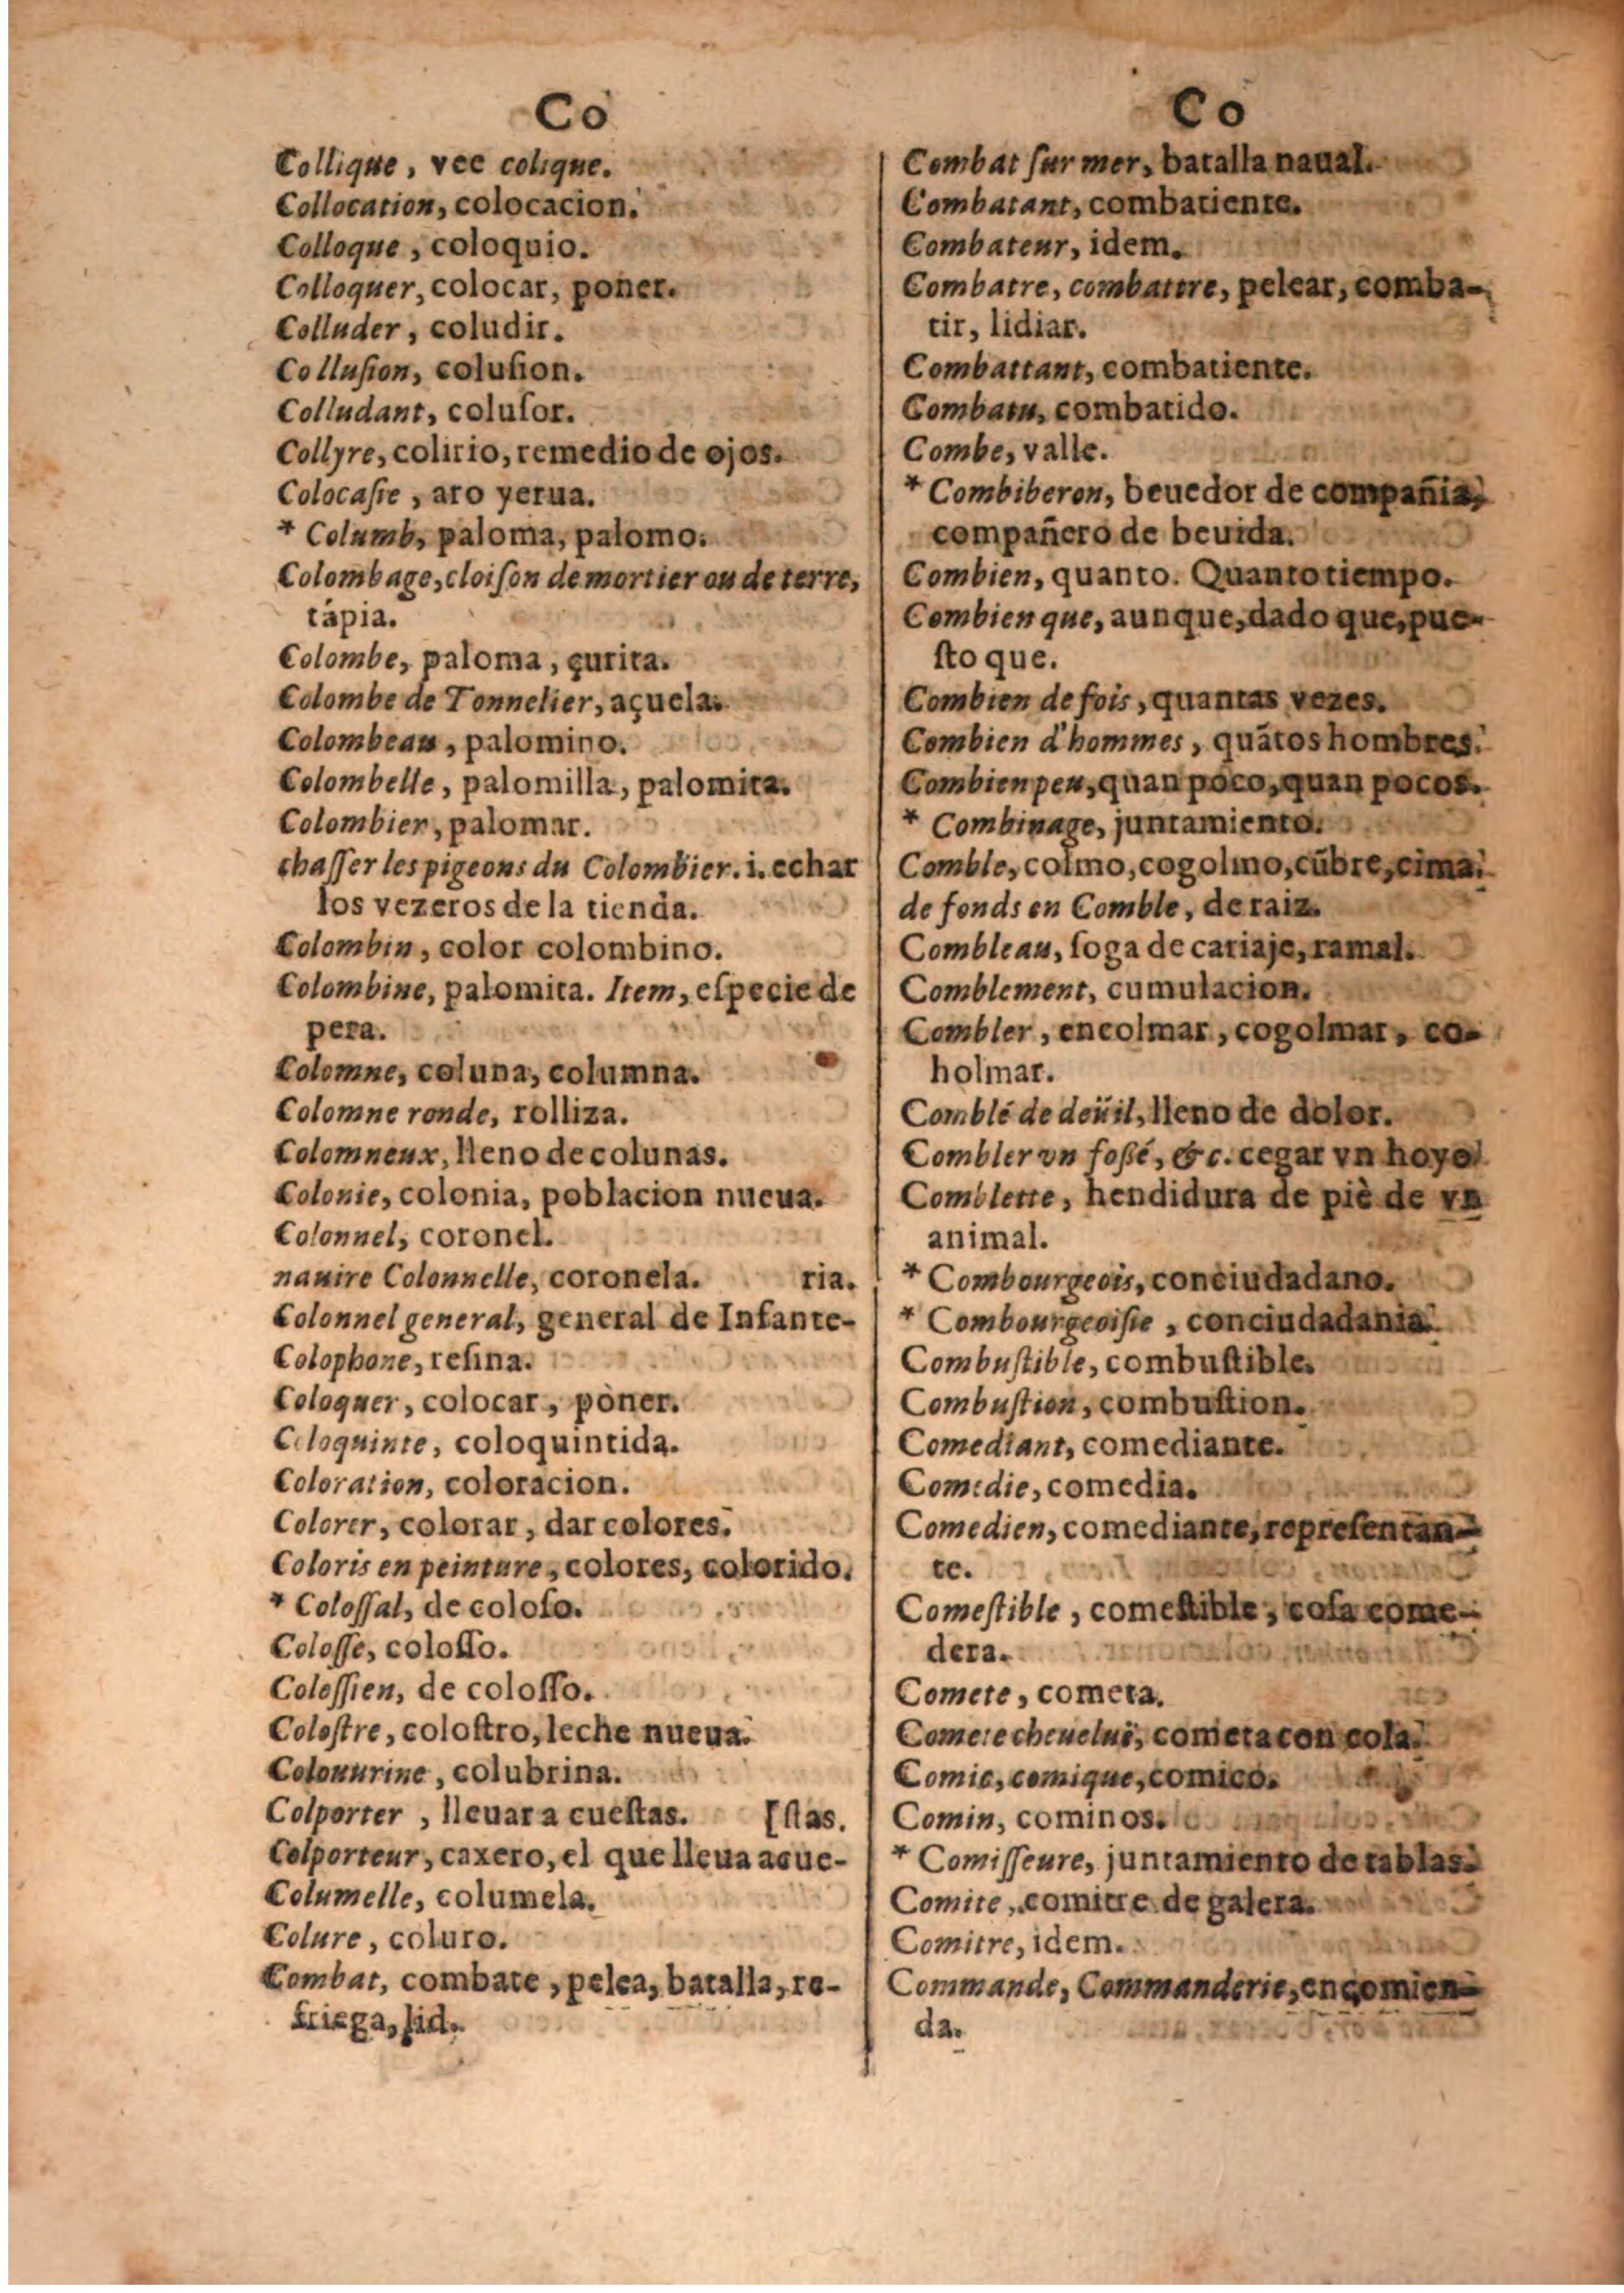 Co
Collique, vee colique.
Collocation, colocacion.
Colloque, coloquio.
Colloquer, colocar, poner.
Colluder, coludir.
Colluſion, coluſion.
Colludant, coluſor.
Collyre, colirio, remedio de ojos.
Colocaſie, aro yerua.
* Columb, paloma, palomo.
Colombage, cloiſon de mortier ou de terre,
tápia.
Colombe, paloma, çurita.
Colombe de Tonnelier, açuela.
Colombeau, palomino.
Colombelle, palomilla, palomita.
Colombier, palomar.
chaſſer les pigeons du Colombier. i. echar
los vezeros de la tienda.
Colombin, color colombino.
Colombine, palomita. Item, eſpecie de
pera.
Colomne, coluna, columna.
Colomne ronde, rolliza.
Colomneux, lleno de colunas.
Colonie, colonia, poblacion nueua.
Colonnel, coronel.
nauire Colonnelle, coronela. ria.
Colonnel general, general de Infante-
Colophone, reſina.
Coloquer, colocar, poner.
Coloquinte, coloquintida.
Coloration, coloracion.
Colorer, colorar, dar colores.
Coloris en peinture, colores, colorido.
* Coloſſal, de coloſo.
Coloſſe, coloſſo.
Coloſſien, de coloſſo.
Coloſtre, coloſtro, leche nueua.
Colouurine, colubrina.
Colporter, lleuar a cueſtas. [ſtas.
Colporteur, caxero, el que lleua a cue-
Columelle, columela.
Colure, coluro.
Combat, combate, pelea, batalla, re-
friega, lid.
Co
Combat ſur mer, batalla naual.
Combatant, combatiente.
Combateur, idem.
Combatre, combattre, pelear, comba-
tir, lidiar.
Combattant, combatiente.
Combatu, combatido.
Combe, valle.
* Combiberon, beuedor de compañia,
compañero de beuida.
Combien, quanto. Quanto tiempo.
Combien que, aunque, dado que, pue-
ſto que.
Combien de fois, quantas vezes.
Combien d'hommes, quãtos hombres.
Combien peu, quan poco, quan pocos.
* Combinage, juntamiento.
Comble, colmo, cogolmo, cũbre, cima.
de fonds en Comble, de raiz.
Combleau, ſoga de cariaje, ramal.
Comblement, cumulacion.
Combler, encolmar, cogolmar, co-
holmar.
Comblé de deüil, lleno de dolor.
Combler vn foßé, &c. cegar vn hoyo
Comblette, hendidura de piè de vn
animal.
* Combourgeois, conciudadano.
* Combourgeoiſie, conciudadania.
Combuſtible, combuſtible.
Combuſtion, combuſtion.
Comediant, comediante.
Comedie, comedia.
Comedien, comediante, repreſentan-
te.
Comeſtible, comeſtible, coſa come-
dera.
Comete, cometa.
Comete cheueluë, cometa con cola.
Comic, comique, comico.
Comin, cominos.
* Comiſſeure, juntamiento de tablas.
Comite, comitre de galera.
Comitre, idem.
Commande, Commanderie, encomien-
da.